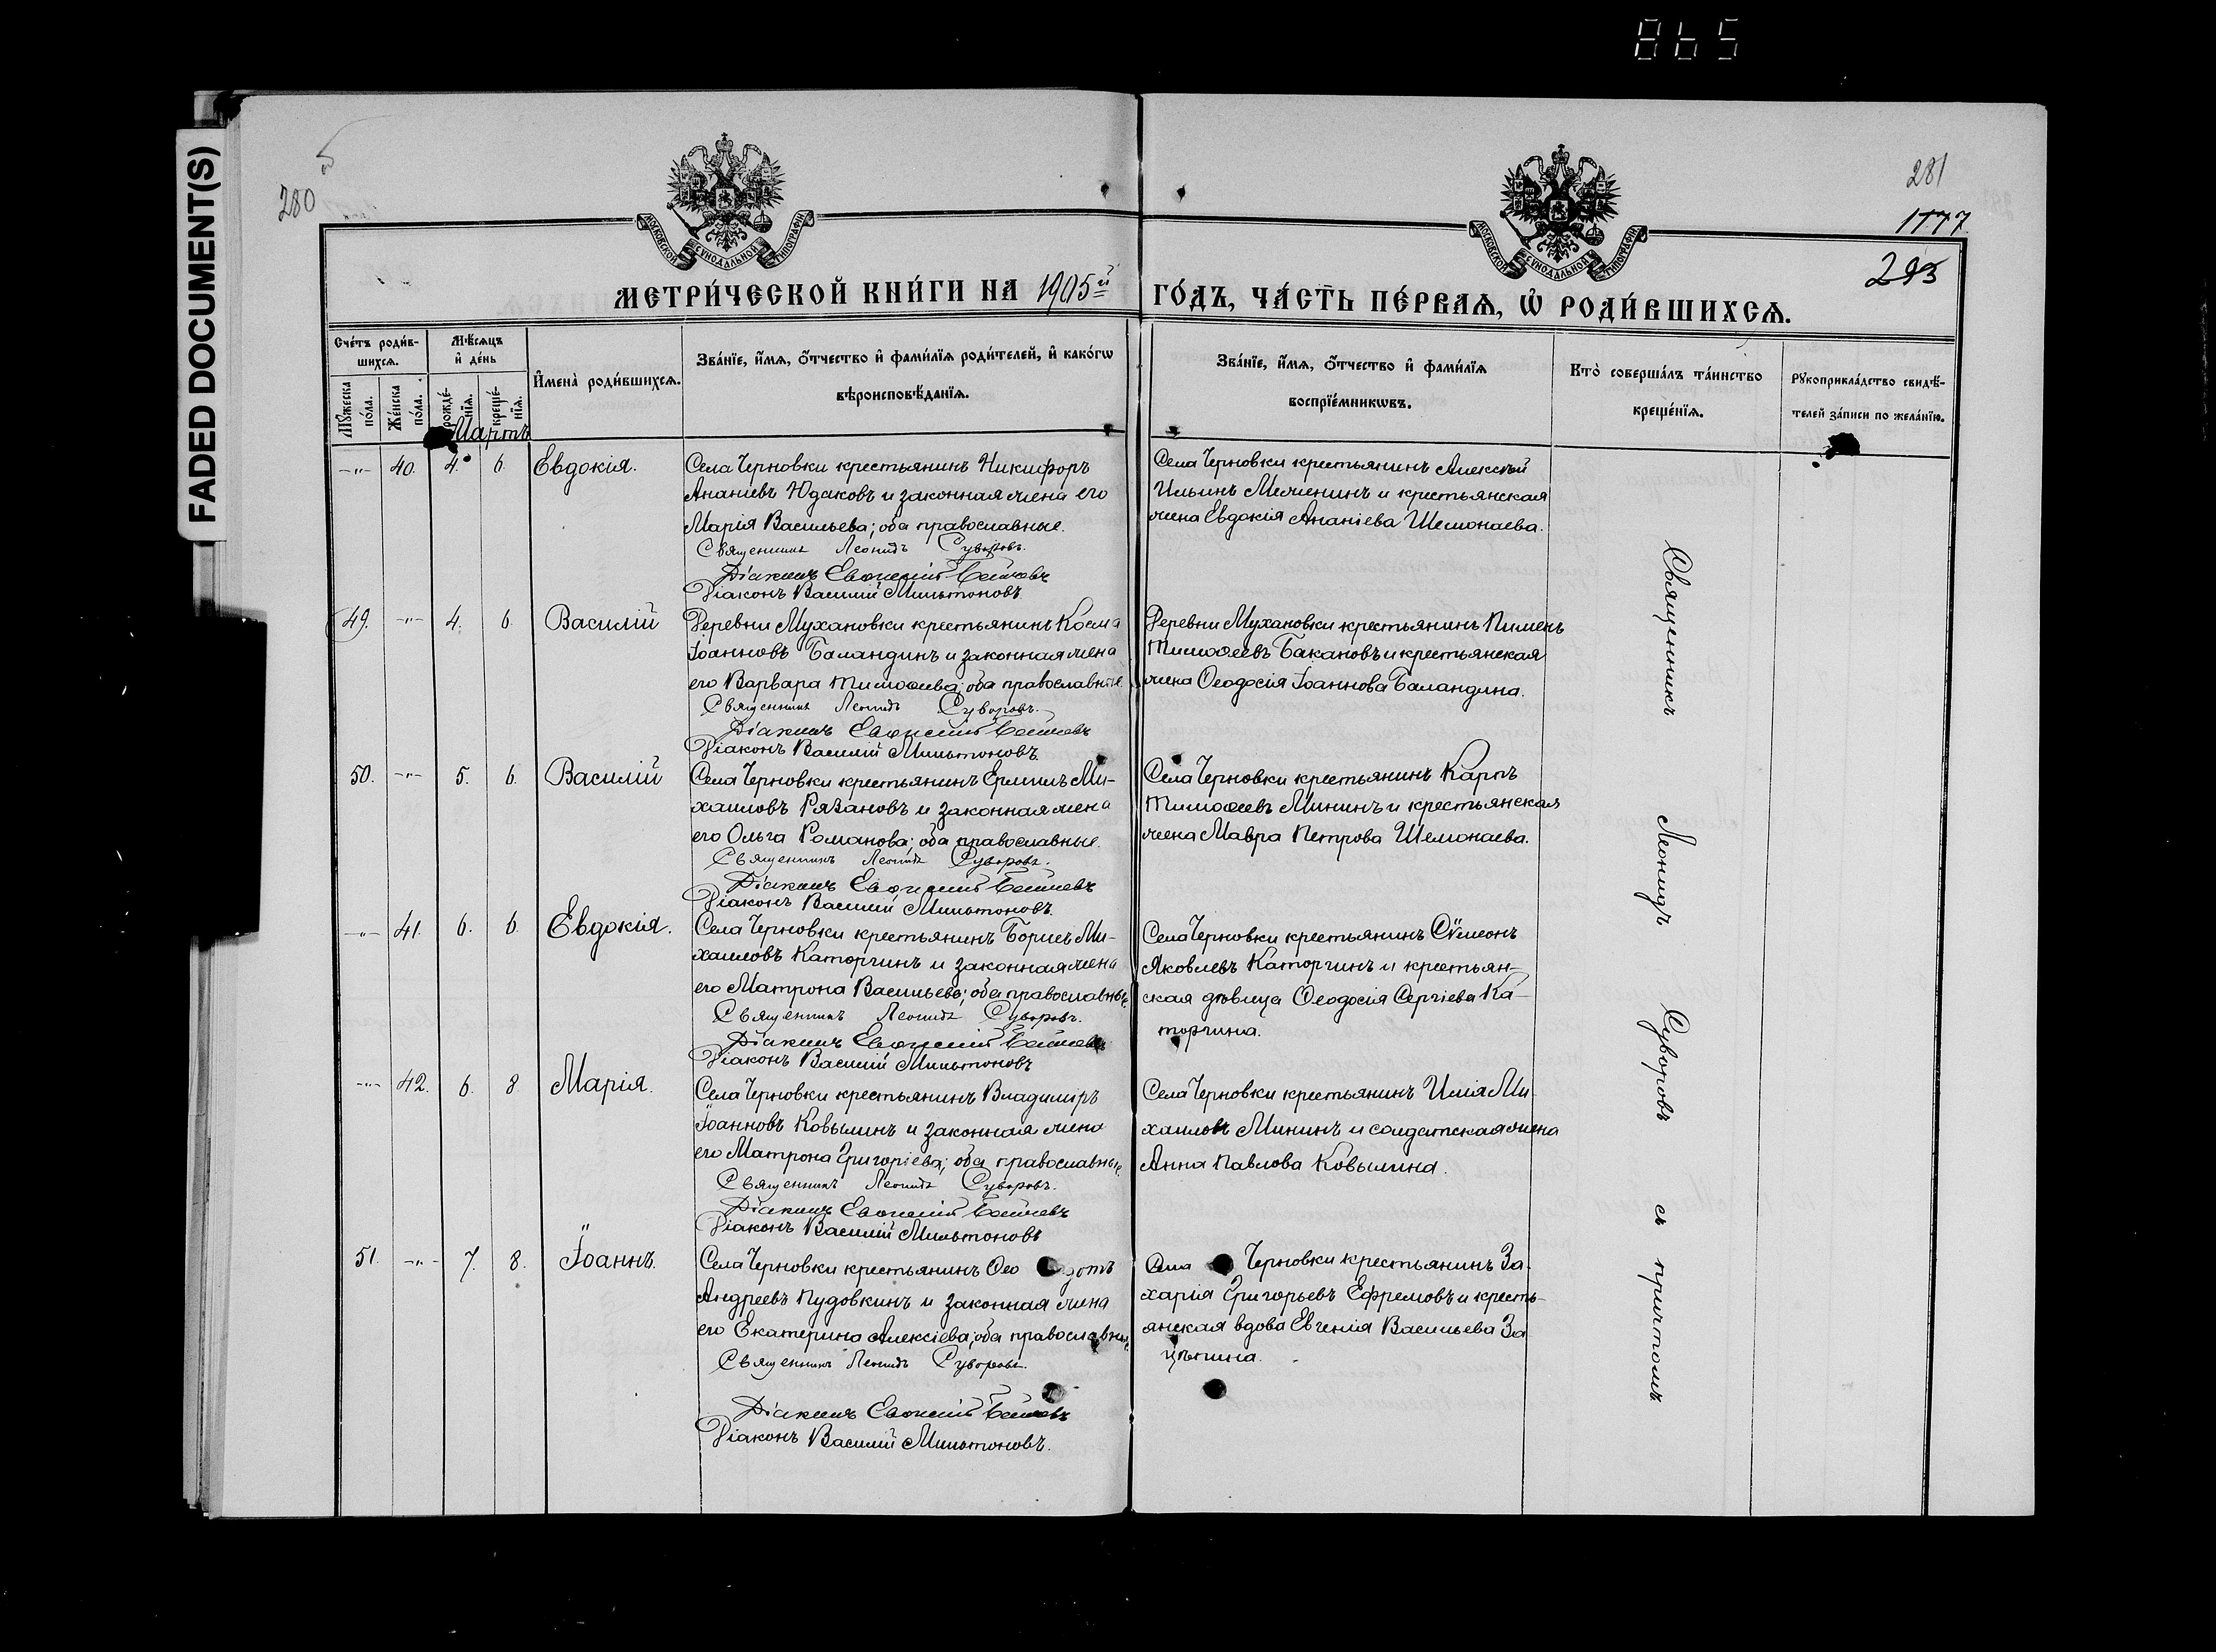 865
FADED DOCUMENT(S)
280 об
281
1777
293
МОСКОВСКОЙ СѴНОДАЛЬНОЙ ТИПОГРАФІИ
МОСКОВСКОЙ СѴНОДАЛЬНОЙ ТИПОГРАФІИ
МЕТРИ́ЧЕСКОЙ КНИ́ГИ НА 1905й ГО́ДЪ, ЧА́СТЬ ПЕ́РВАѦ, Ѡ҆ РОДИ́ВШИХСѦ.
Сче́тъ роди́в-
шихсѧ.
Мꙋ́жеска
по́ла.
Же́нска
по́ла.
Мѣ́сѧцъ
и҆ де́нь
рожде́-
нїѧ.
креще́-
нїѧ.
И҆мена̀ роди́вшихсѧ.
Зва́нїе, и҆́мѧ, ѻ҆́тчество и҆ фами́лїѧ роди́телей, и҆ како́гѡ
вѣроисповѣ́данїѧ.
Зва́нїе, и҆́мѧ, ѻ҆́тчество и҆ фами́лїѧ
воспрїе́мникѡвъ.
Кто̀ соверша́лъ та́инство
креще́нїѧ.
Рꙋкоприкла́дство свидѣ́-
телей за́писи по жела́нїю.
Мартъ
—"— 40. 4. 6. Евдокія.
Села Черновки крестьянинъ Никифоръ
Ананіевъ Юдаковъ и законная жена его
Марія Васильева; оба православные.
Священникъ Леонидъ Суворовъ.
Діаконъ Василій Мильтоновъ
Села Черновки крестьянинъ Алексѣй
Ильинъ Меленинъ и крестьянская
жена Евдокія Ананіева Шемонаева.
49. —"— 4. 6. Василій
Деревни Мухановки крестьянинъ Косма
Іоанновъ Баландинъ и законная жена
его Варвара Тимоѳеева; оба православные
Священникъ Леонидъ Суворовъ.
Діаконъ Василій Мильтоновъ.
Деревни Мухановки крестьянинъ Пименъ
Тимоѳеевъ Бакановъ и крестьянская
жена Ѳеодосія Іоаннова Баландина.
50. —"— 5. 6. Василій
Села Черновки крестьянинъ Ермилъ Ми-
хаиловъ Рязановъ и законная жена
его Ольга Романова; оба православные.
Священникъ Леонидъ Суворовъ.
Діаконъ Василій Мильтоновъ.
Села Черновки крестьянинъ Карпъ
Тимоѳеевъ Мининъ и крестьянская
жена Мавра Петрова Шемонаева.
—"— 41. 6. 6. Евдокія.
Села Черновки крестьянинъ Борисъ Ми-
хаиловъ Каторгинъ и законная жена
его Матрона Васильева; оба православные.
Священникъ Леонидъ Суворовъ.
Діаконъ Василій Мильтоновъ
Села Черновки крестьянинъ Сѷмеонъ
Яковлевъ Каторгинъ и крестьян-
ская дѣвица Ѳеодосія Сергіева Ка-
торгина.
—"— 42. 6. 8. Марія.
Села Черновки крестьянинъ Владиміръ
Іоанновъ Ковылинъ и законная жена
его Матрона Григоріева; оба православные.
Священникъ Леонидъ Суворовъ.
Діаконъ Василій Мильтоновъ
Села Черновки крестьянинъ Илія Ми
хаиловъ Мининъ и солдатская жена
Анна Павлова Ковылина.
51. —"— 7. 8. Іоаннъ.
Села Черновки крестьянинъ Ѳео дотъ
Андреевъ Пудовкинъ и законная жена
его Екатерина Алексіева; оба православные.
Священникъ Леонидъ Суворовъ.
Діаконъ Василій Мильтоновъ.
Села Черновки крестьянинъ За-
харія Григорьевъ Ефремовъ и кресть-
янская вдова Евгенія Васильева За
цѣпина.
Священникъ Леонидъ Суворовъ съ причтомъ